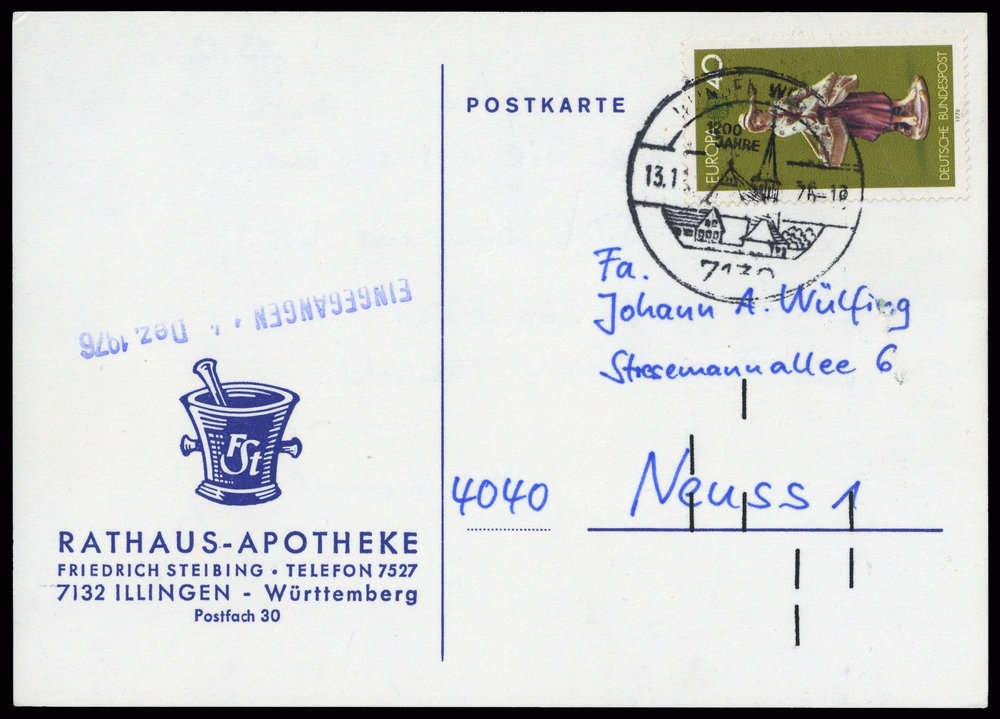 POSTKARTE
EUROPA 40
DEUTSCHE BUNDESPOST
1976
1200
JAHRE
Fa.
Johann A. Wülfing
Stresemannallee 6
4040 Neuss 1
EINGEGANGEN Dez. 1976
FSt
RATHAUS-APOTHEKE
FRIEDRICH STEIBING • TELEFON 7527
7132 ILLINGEN - Württemberg
Postfach 30